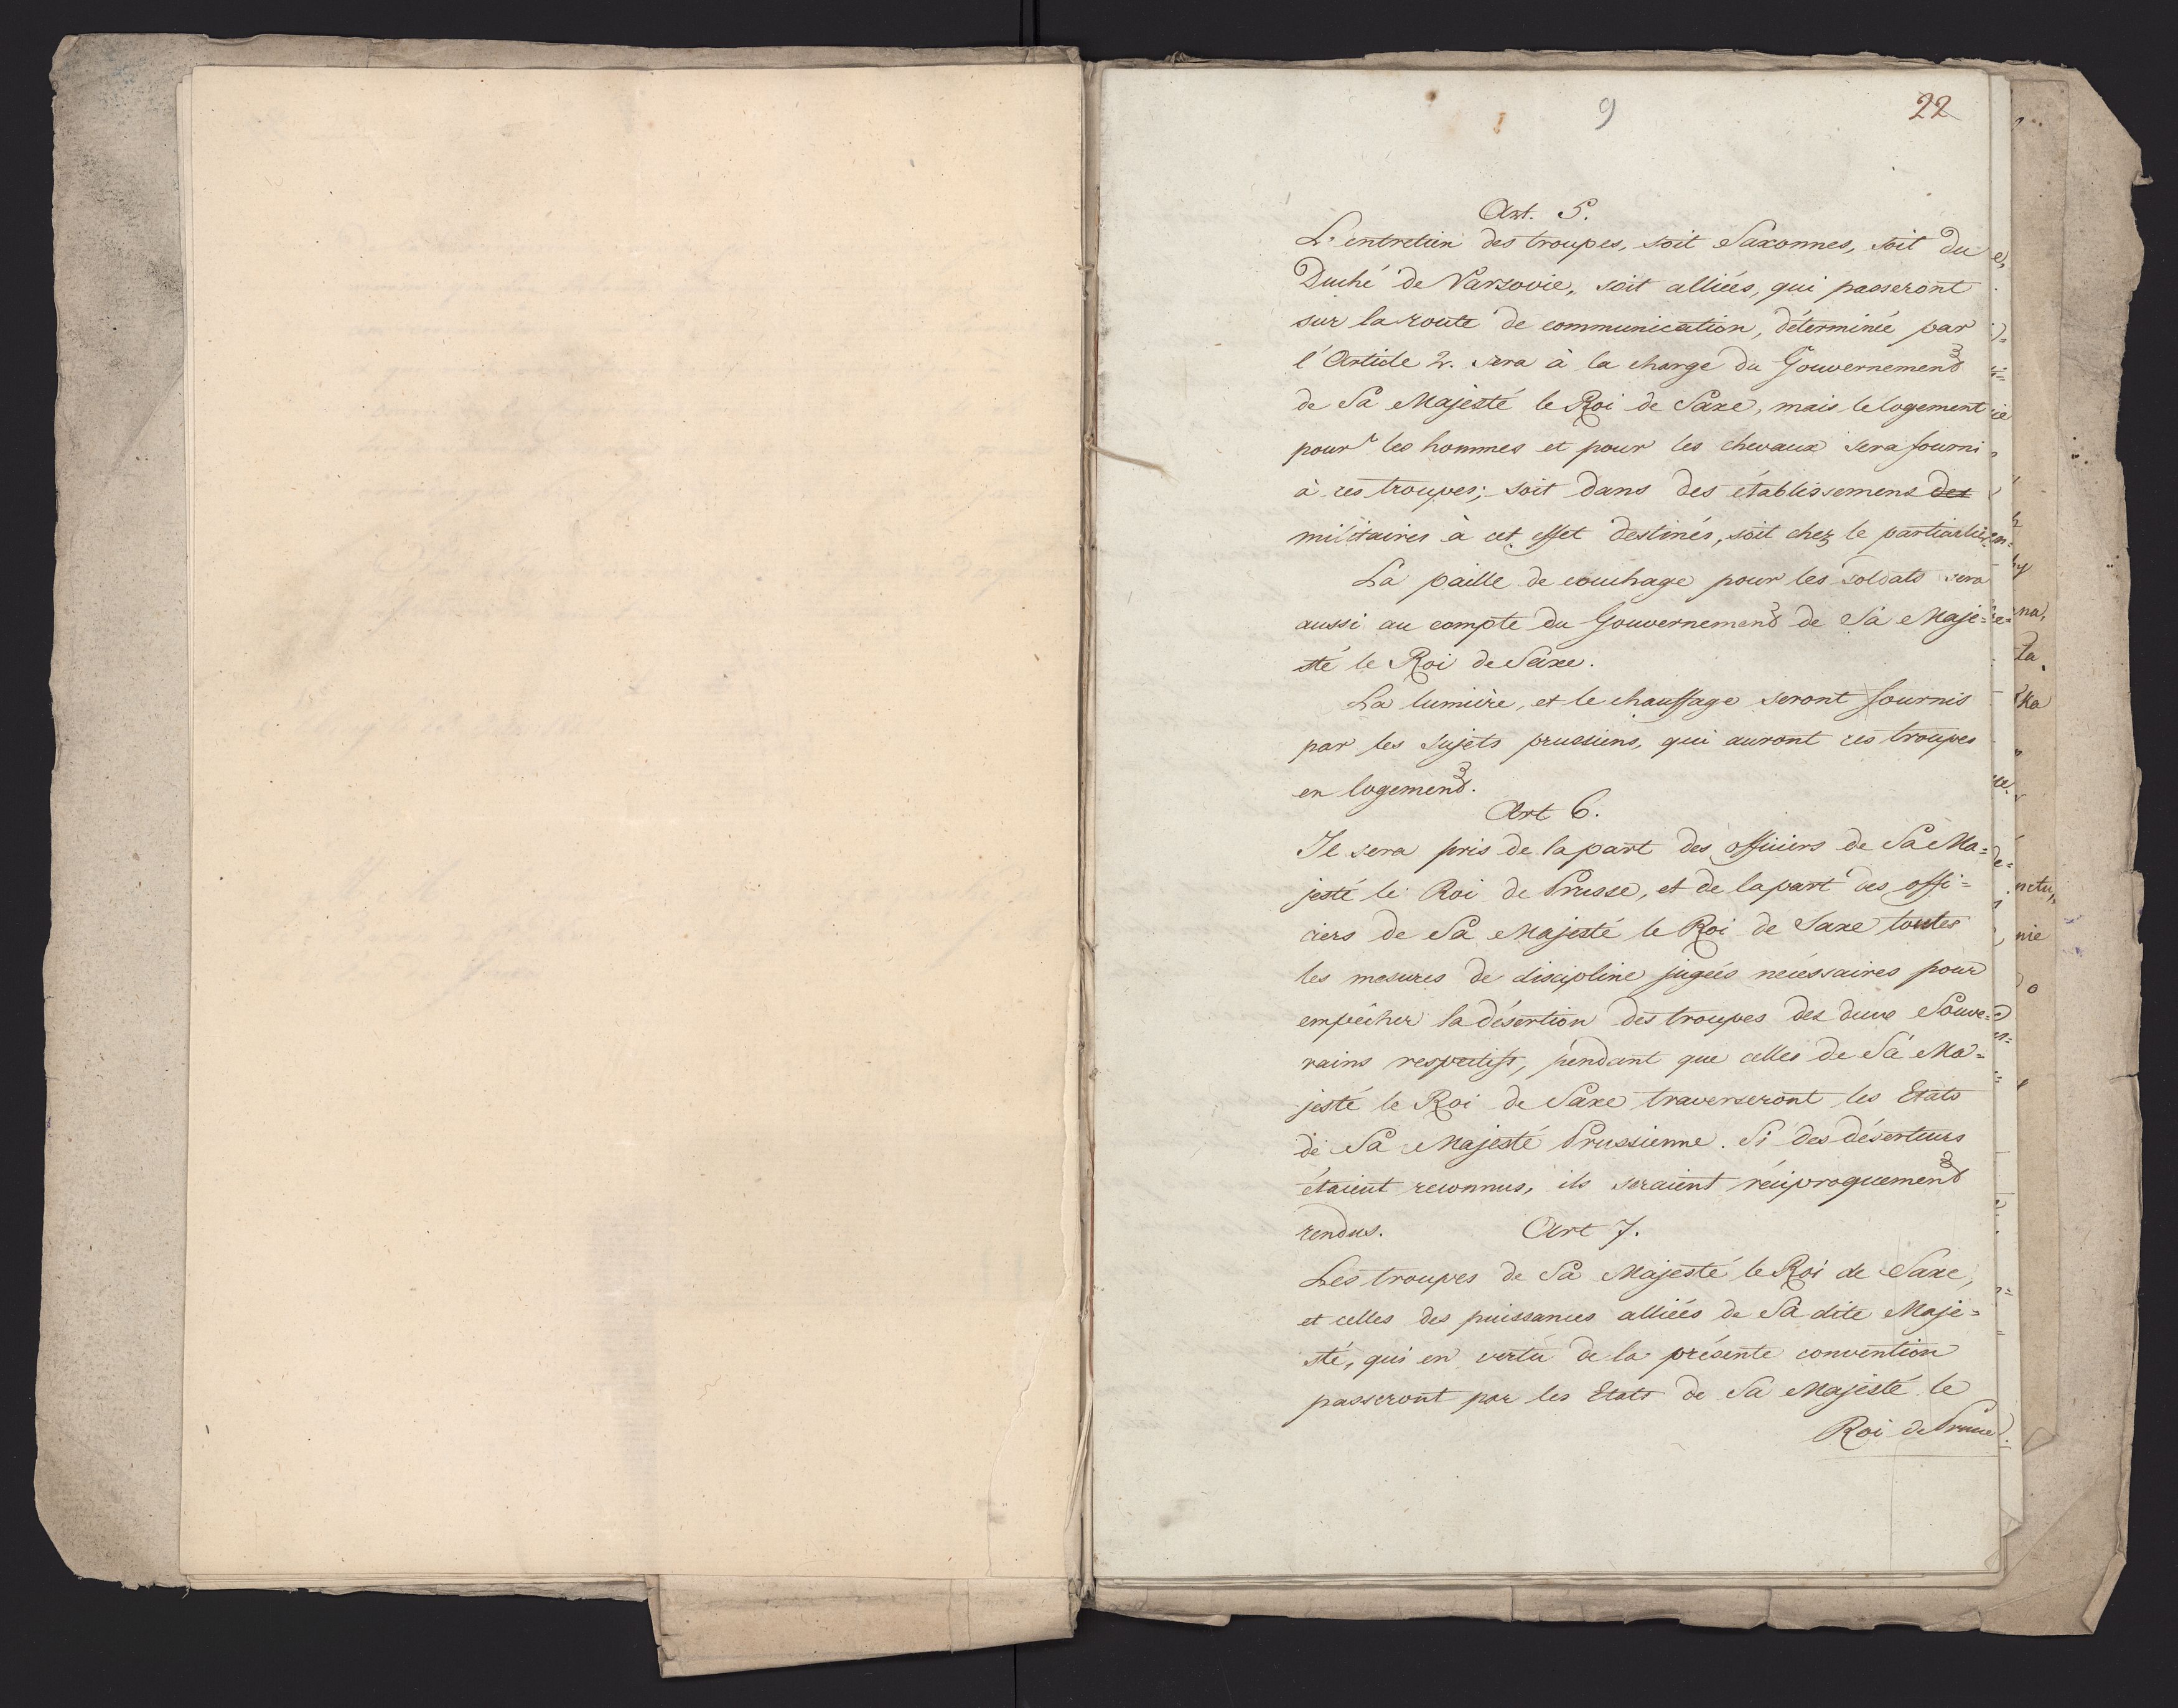 9
22
Art. 5.
L'entretien des troupes, soit Saxonnes, soit du
Duché de Varsovie, soit alliées, qui passeront
sur la route de communication, déterminée par
l'Article 2. sera à la charge du Gouvernement
de Sa Majesté le Roi de Saxe, mais le logement
pour les hommes et pour les chevaux sera fourni
à ces troupes; soit dans des établissemens des
militaires à cet effet destinés, soit chez le particulier
La paille de couchage pour les soldats sera
aussi au compte du Gouvernement de Sa Maje=
sté le Roi de Saxe.
La lumière, et le chauffage seront fournis
par les sujets prussiens, qui auront ces troupes
en logement.
Art 6.
Il sera pris de la part des officiers de Sa Ma=
jesté le Roi de Prusse, et de la part des offi=
ciers de Sa Majesté le Roi de Saxe toutes
les mesures de discipline jugées nécessaires pour
empêcher la désertion des troupes des deux Souve=
rains respectifs, pendant que celles de Sa Ma=
jesté le Roi de Saxe traverseront les Etats
de Sa Majesté Prussienne. Si des déserteurs
étaient reconnus, ils seraient réciproquement
rendus.
Art 7.
Les troupes de Sa Majesté le Roi de Saxe,
et celles des puissances alliées de Sa dite Maje=
sté, qui en vertu de la présente convention
passeront par les Etats de Sa Majesté le
Roi de Prusse